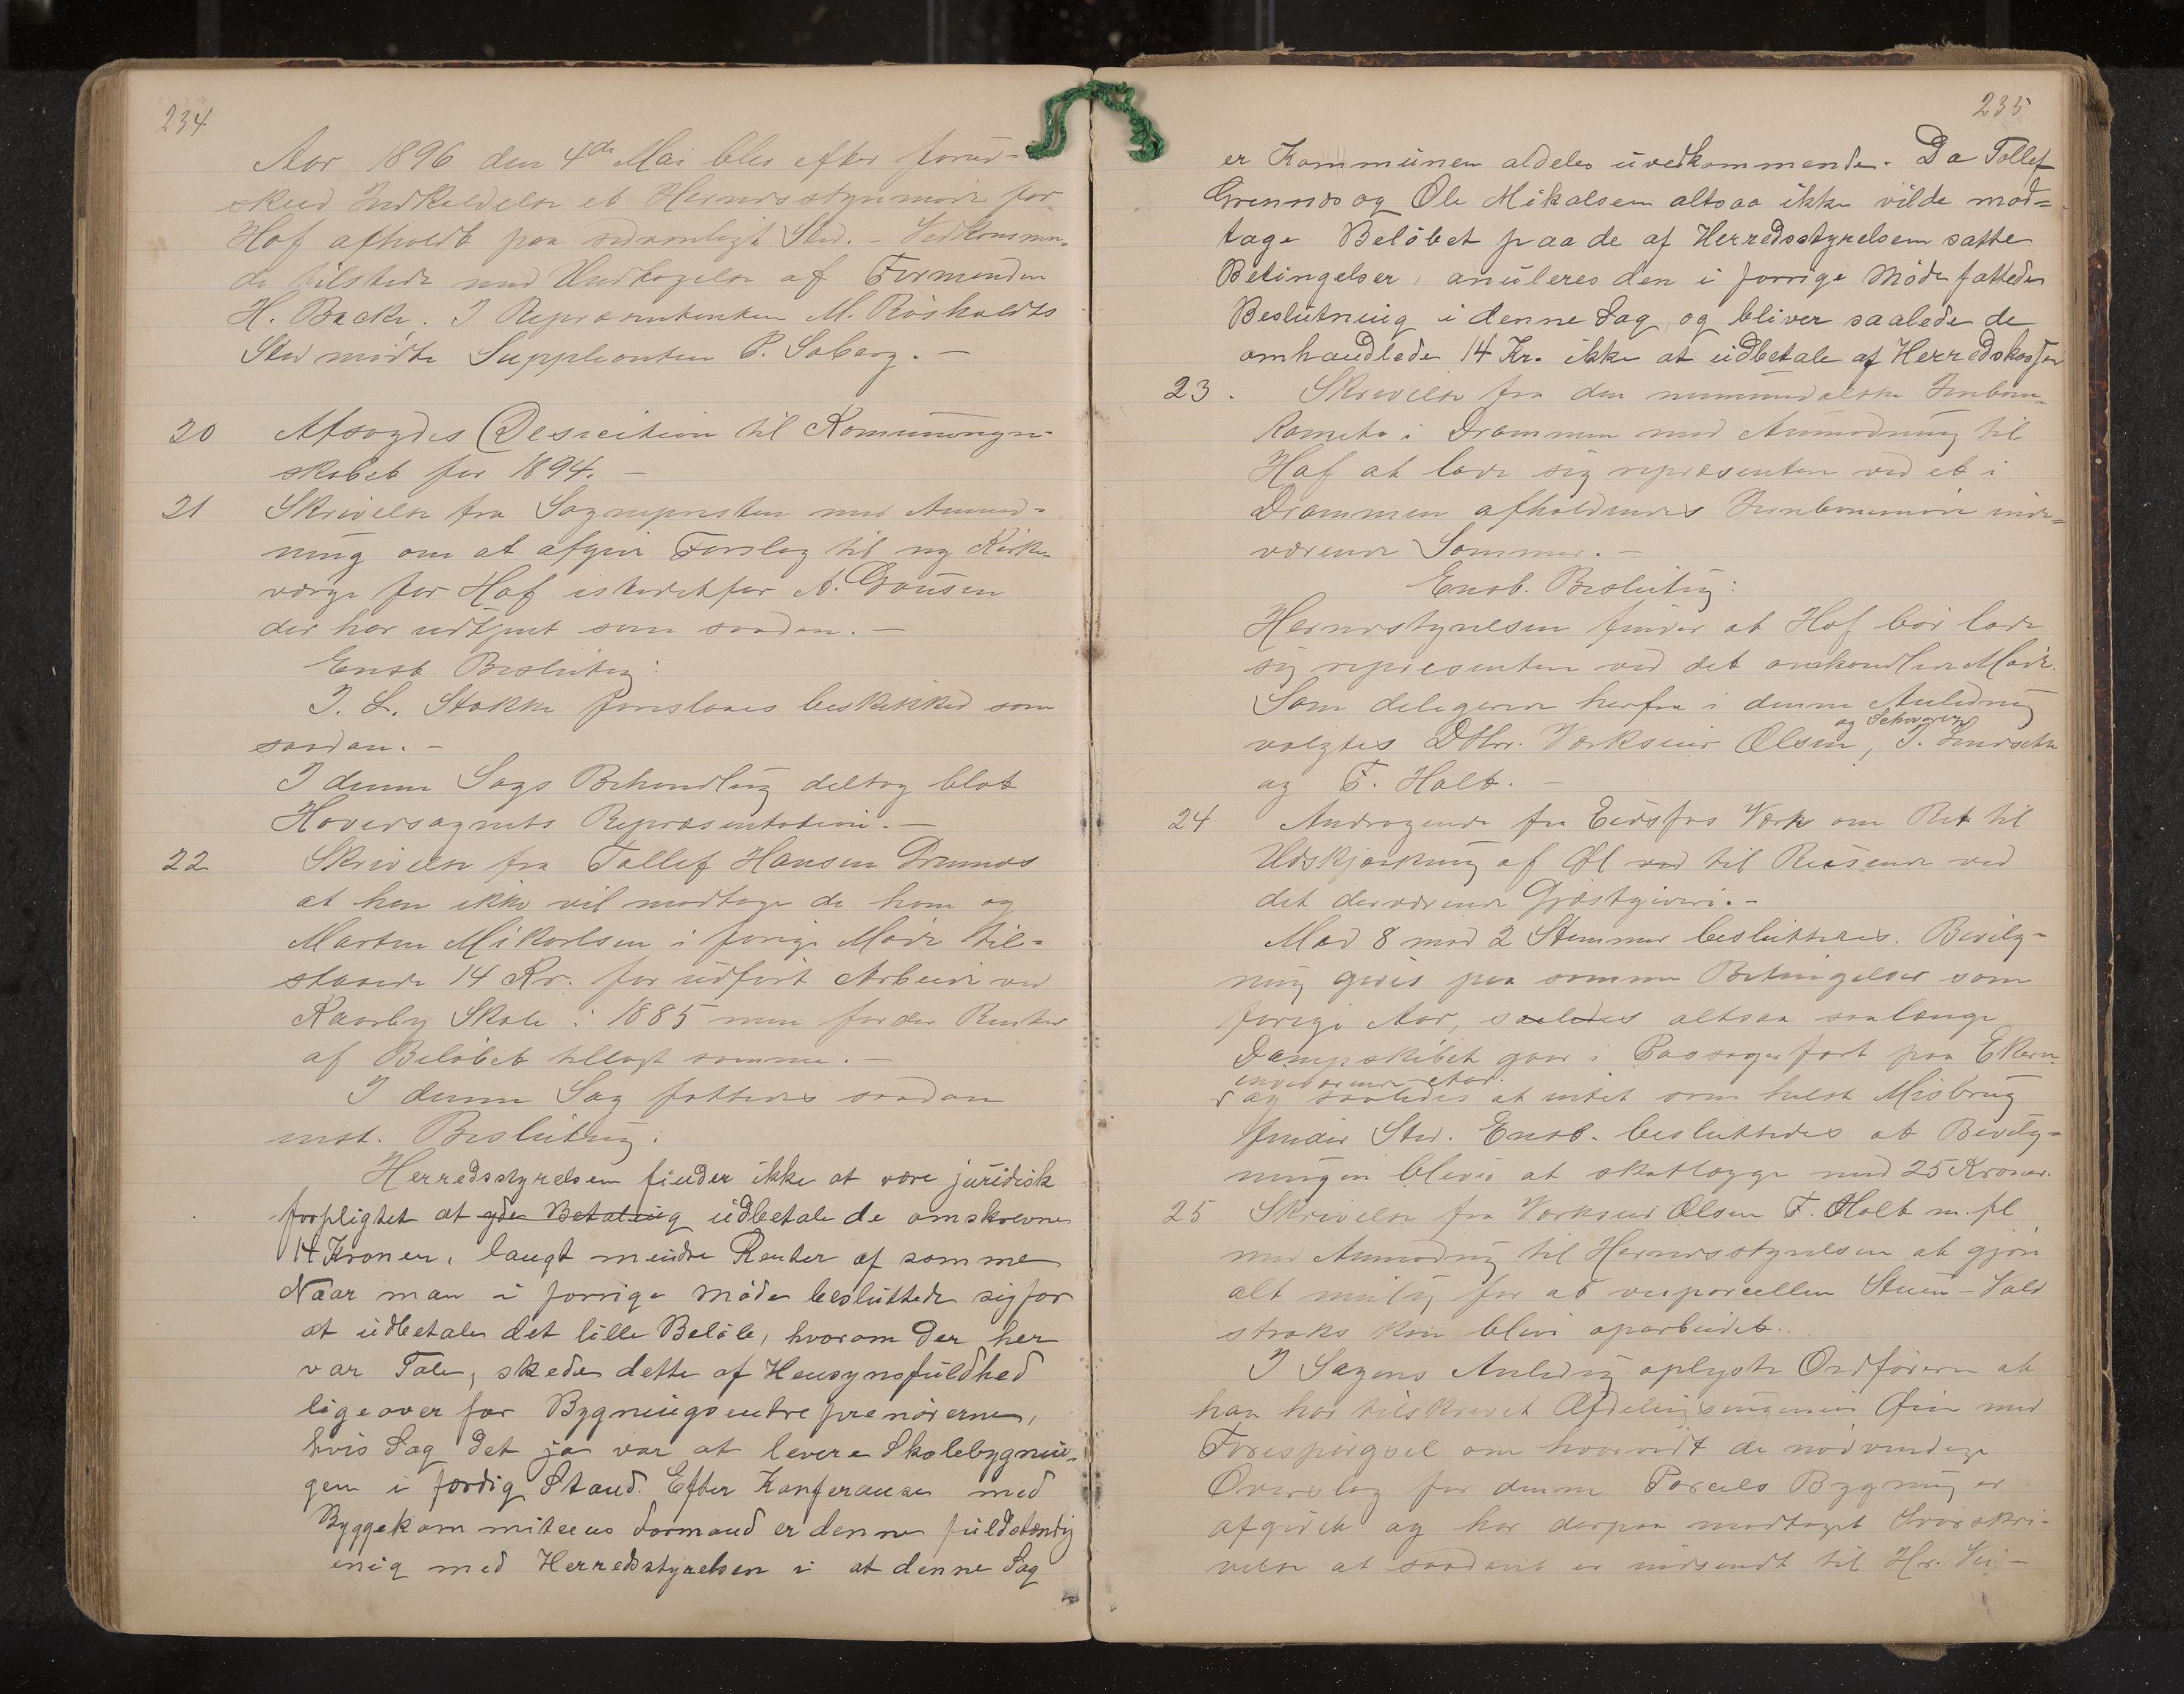 234
Aar 1896 den 4de Mai blev efter forud-
skeed Indkaldelse et Herredsstyremøde for
Hof afholdt paa sedvanligt Sted. - Vedkommen-
de tilstede med Undtagelse af Formanden
H. Backe. I Repræsentanten M. Røsholdts
Sted mødte Suppleanten P. Soberg. -
20 Afsagdes Desicition til Komuneregn-
skabet for 1894. -
21 Skrivelse fra Sognepresten med Anmod-
ning om at afgive Forslag til ny Kirke-
værge for Hof istedetfor A. Gausen
der har udtjent som saadan. -
Enst. Beslutng:
J. L. Stokke foreslaaes beskikked som
saadan. -
I denne Sags Behandlng deltog blot
Hovedsognets Repræsentation. -
22 Skrivelse fra Tollef Hansen Grennes
at han ikke vil modtage de ham og
Marten Mikarlsen i forige Møde til-
staaede 14 Kr. for udført Arbeide ved
Kaarby Skole i 1885 men fordrer Renter
af Beløbet tillagt samme. -
I denne Sag fattedes saadan
enst. Beslutng:
Herredsstyrelsen finder ikke at være juridisk
forpligtet at yde Betalning udbetale de omskrevne
14 Kroner, langt mindre Renter af samme
Naar man i forrige Møde besluttede sig for
at udbetale det lille Beløb, hvorom der her
var Tale, skede dette af Hensynsfuldhed
ligeover for Bygningsentreprenørerne,
hvis Sag det jo var at levere Skolebygnin-
gen i færdig Stand. Efter Konferanse med
Byggekommiteens Formand er denne fuldstændig
enig med Herredsstyrelsen i at denne Sag
235
er Kommunen aldeles uvedkommende. Da Tollef
Grennes og Ole Mikalsen altsaa ikke vilde mod-
tage Beløbet paa de af Herredsstyrelsen satte
Betingelser, anuleres den i forrige Møde fattede
Beslutning i denne Sag, og bliver saalede de
omhandlede 14 Kr. ikke at udbetale af Herredskassen
23. Skrivelse fra den nummedalske Jernbane-
Komite i Drammen med Anmodning til
Hof at lade sig repræsentere ved et i
Drammen afholdendes Jernbanemøde inde-
værende Sommer. -
Enst. Beslutng:
Herredstyrelsen finder at Hof bør lade
sig repræsentere ved det omhandlede Møde.
Som delegerede herfra i denne Anledning
og Schwartz
valgtes DHrr. Værkseier Olsen, J.
og F. Holt. -
24 Andragende fra Eidsfos Værk om Ret til
Udskjænkning af Øl ved til Reisende ved
det derværende Gjæstgiveri. -
Med 8 mod 2 Stemmer besluttedes. Bevilg-
ning gives paa samme Betingelser som
forige Aar, saaledes altsaa saalænge
Dampskibet gaar i Passagerfart paa Ekern-
indeværende Aar.
og saaledes at intet som helst Misbrug
finder Sted. Enst. besluttedes at Bevilg-
ningen bliver at skatlægge med 25 Kroner.
25 Skrivelse fra Værkseier Olsen F. Holt m. fl
med Anmodng til Herredsstyrelsen at gjøre
alt mulig for at veiparcellen Stuen - Vold
straks kan blive oparbeidet..
I Sagens Anledng oplyste Ordføreren at
han har tilskrevet Afdelingsingeniør med
Forespørgsel om hvorvidt de nødvendige
Overslag for denne Parcels Bygning er
afgivet og har derpaa modtaget Svarskri-
velse at saadant er indsendt til Hr. Vei-